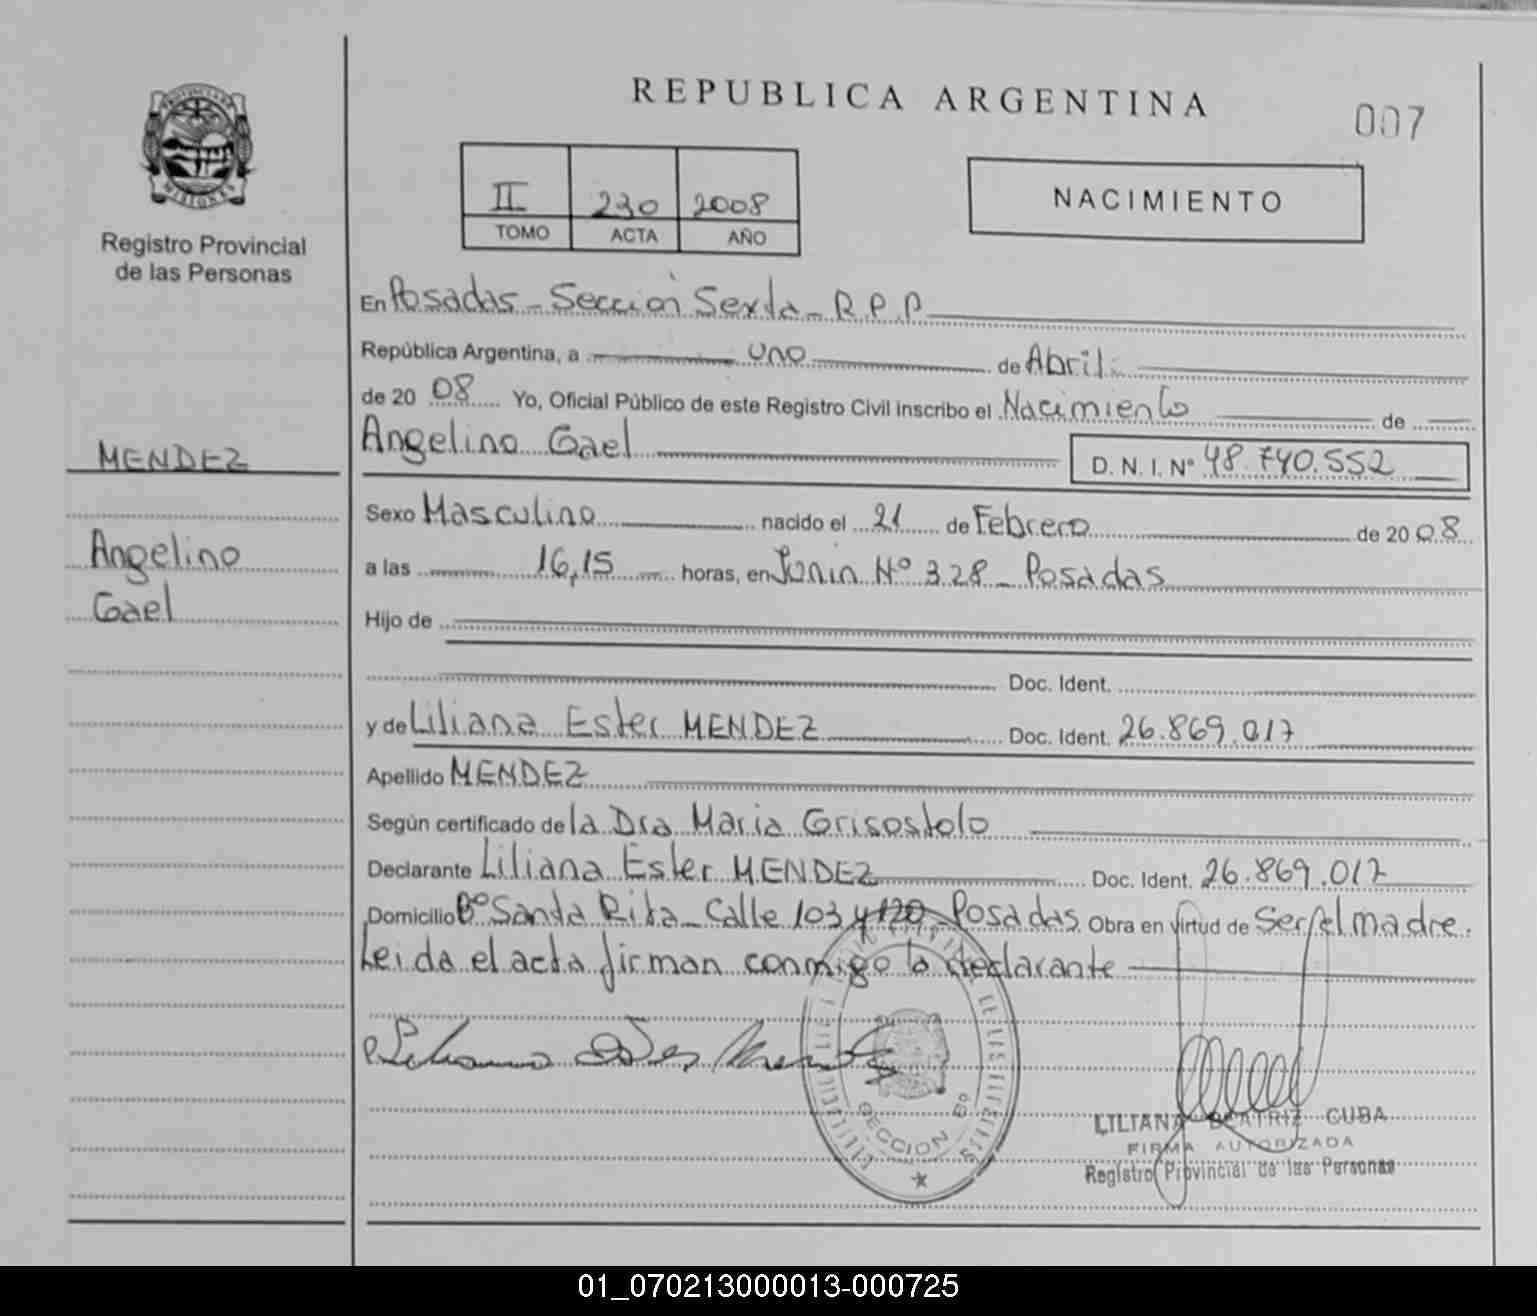 REPUBLICA ARGENTINA
007
II 230 2008
TOMO ACTA AÑO
NACIMIENTO
PROVINCIA DE MISIONES
Registro Provincial
de las Personas
MENDEZ
Angelino
Gael
En Posadas - Sección Sexta - R.P.P.
República Argentina, a uno de Abril
de 2008 Yo, Oficial Público de este Registro Civil inscribo el Nacimiento de
Angelino Gael D. N. I. Nº 48.740.552
Sexo Masculino nacido el 21 de Febrero de 2008
a las 16,15 horas, en Junin Nº 328 - Posadas
Hijo de
Doc. Ident.
y de Liliana Ester MENDEZ Doc. Ident. 26.869.017
Apellido MENDEZ
Según certificado de la Dra Maria Grisostolo
Declarante Liliana Ester MENDEZ Doc. Ident. 26.869.017
Domicilio Bº Santa Rita - Calle 103 y 120 - Posadas Obra en virtud de Ser el madre.
Leida el acta firman conmigo la declarante
SECCION 6º
LILIANA BEATRIZ CUBA
FIRMA AUTORIZADA
Registro Provincial de las Personas
01_070213000013-000725